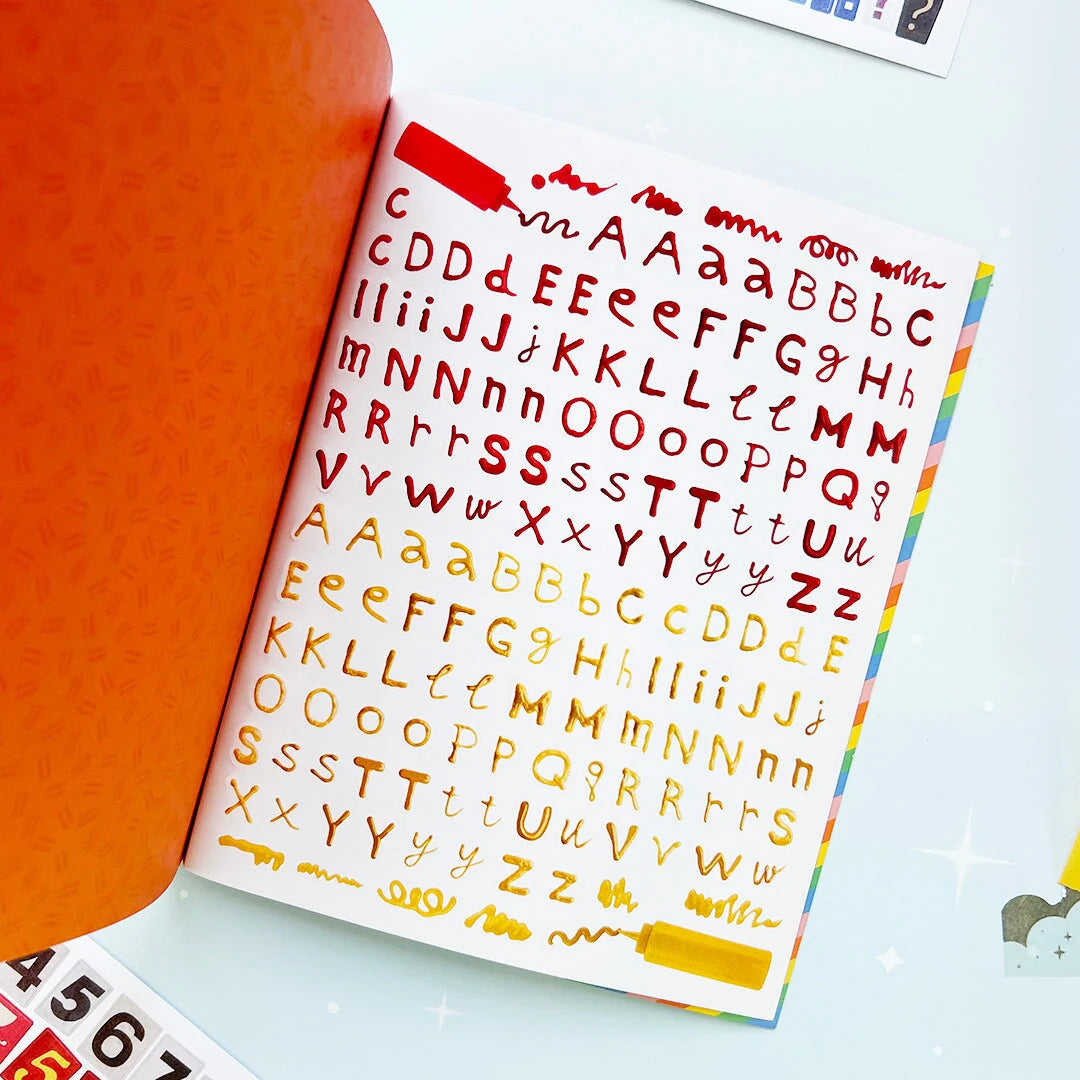 ! ?
C A A a a B B b C
c D D d E E e e F F G g H h
I I i i J J j K K L L l l M M
m N N n n O O o o P p Q q
R R r r S S s s T T t t U u
V v W w X x Y Y y y Z z
A A a a B B b C c D D d E
E e e F F G g H h I I i i J J j
K K L L l l M M m N N n n
O O o o P p Q q R R r r S
S s s T T t t U u V v W w
X x Y Y y y Z z
4 5 6 7
5